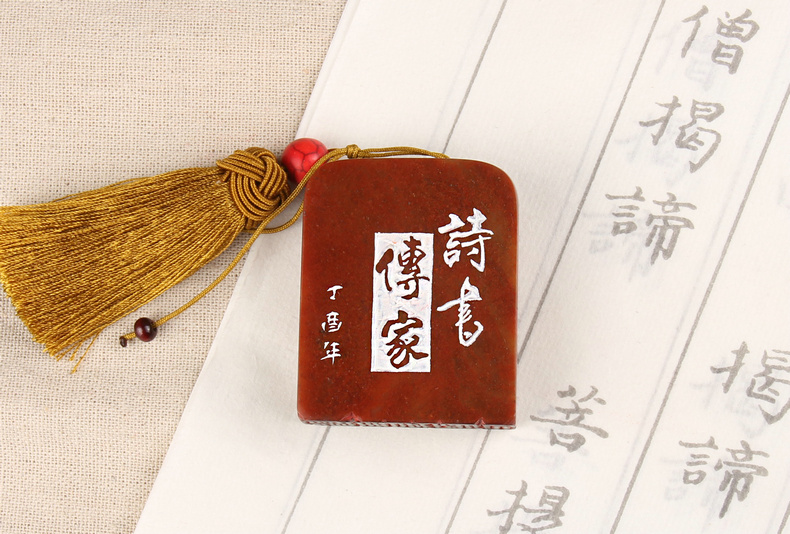 詩書
傳家
丁酉年
僧揭諦
揭諦
菩提